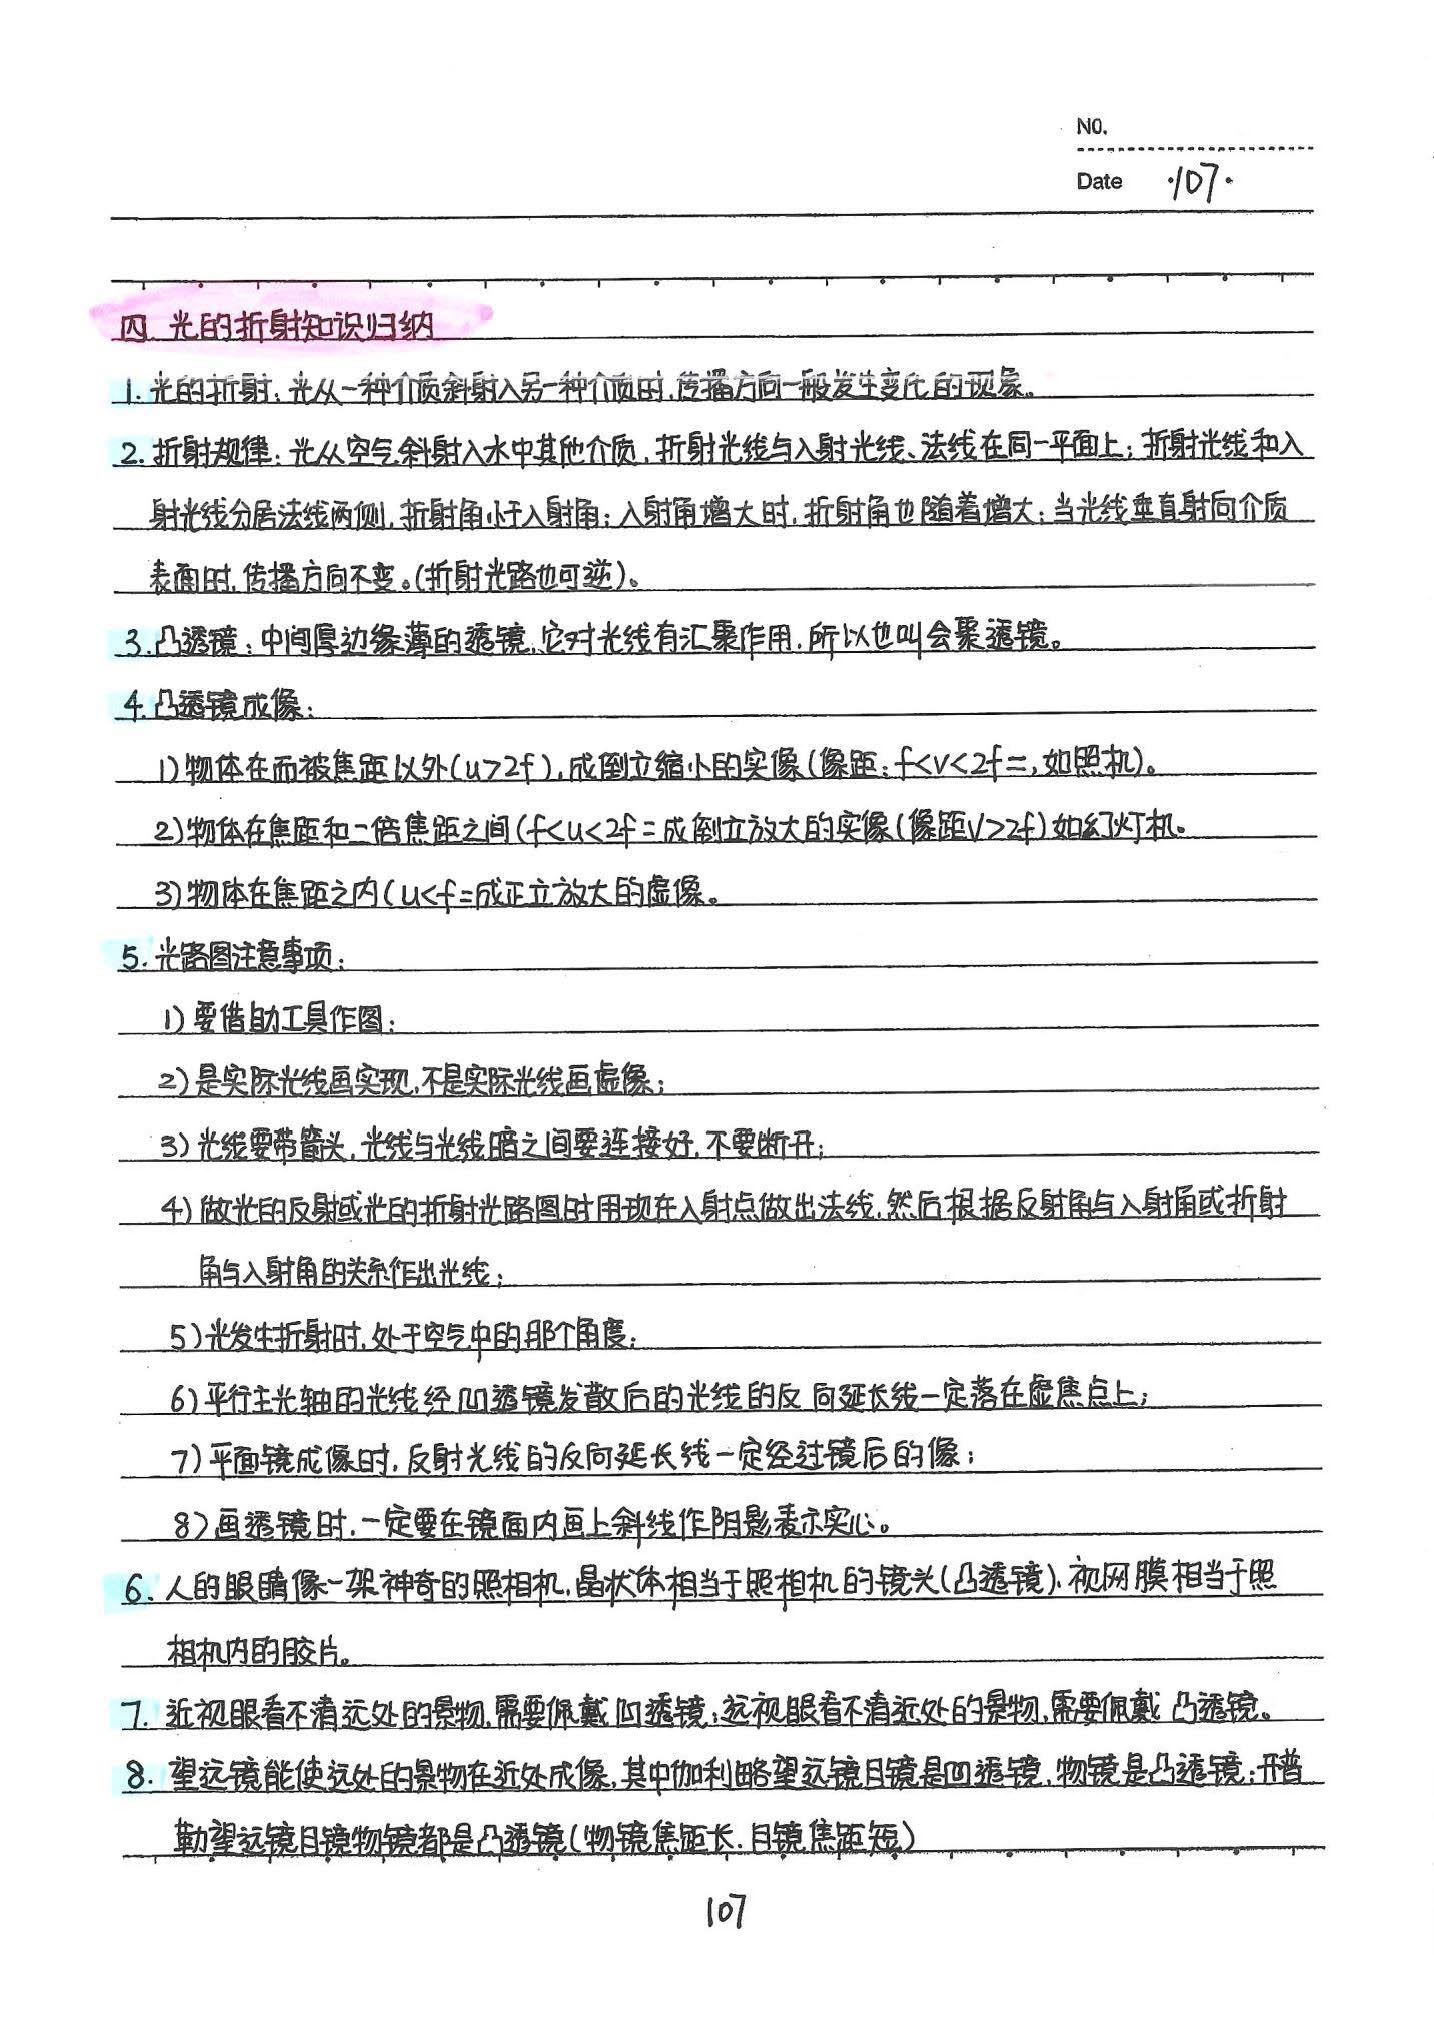 NO.
Date ·107·
四. 光的折射知识归纳
1. 光的折射: 光从一种介质斜射入另一种介质时,传播方向一般发生变化的现象。
2. 折射规律: 光从空气斜射入水中其他介质,折射光线与入射光线、法线在同一平面上; 折射光线和入
射光线分居法线两侧,折射角小于入射角; 入射角增大时,折射角也随着增大; 当光线垂直射向介质
表面时,传播方向不变。(折射光路也可逆)。
3. 凸透镜: 中间厚边缘薄的透镜,它对光线有汇聚作用,所以也叫会聚透镜。
4. 凸透镜成像:
1) 物体在而被焦距以外(u>2f),成倒立缩小的实像(像距: f<v<2f=,如照机)。
2) 物体在焦距和二倍焦距之间(f<u<2f=成倒立放大的实像(像距V>2f)如幻灯机。
3) 物体在焦距之内(u<f=成正立放大的虚像。
5. 光路图注意事项:
1) 要借助工具作图;
2) 是实际光线画实现,不是实际光线画虚像;
3) 光线要带箭头,光线与光线暗之间要连接好,不要断开;
4) 做光的反射或光的折射光路图时用现在入射点做出法线,然后根据反射角与入射角或折射
角与入射角的关系作出光线;
5) 光发生折射时,处于空气中的那个角度;
6) 平行主光轴的光线经凹透镜发散后的光线的反向延长线一定落在虚焦点上;
7) 平面镜成像时,反射光线的反向延长线一定经过镜后的像;
8) 画透镜时,一定要在镜面内画上斜线作阴影表示实心。
6. 人的眼睛像一架神奇的照相机,晶状体相当于照相机的镜头(凸透镜),视网膜相当于照
相机内的胶片。
7. 近视眼看不清远处的景物,需要佩戴凹透镜; 远视眼看不清近处的景物,需要佩戴凸透镜。
8. 望远镜能使远处的景物在近处成像,其中伽利略望远镜目镜是凹透镜,物镜是凸透镜; 开普
勒望远镜目镜物镜都是凸透镜(物镜焦距长,目镜焦距短)
107